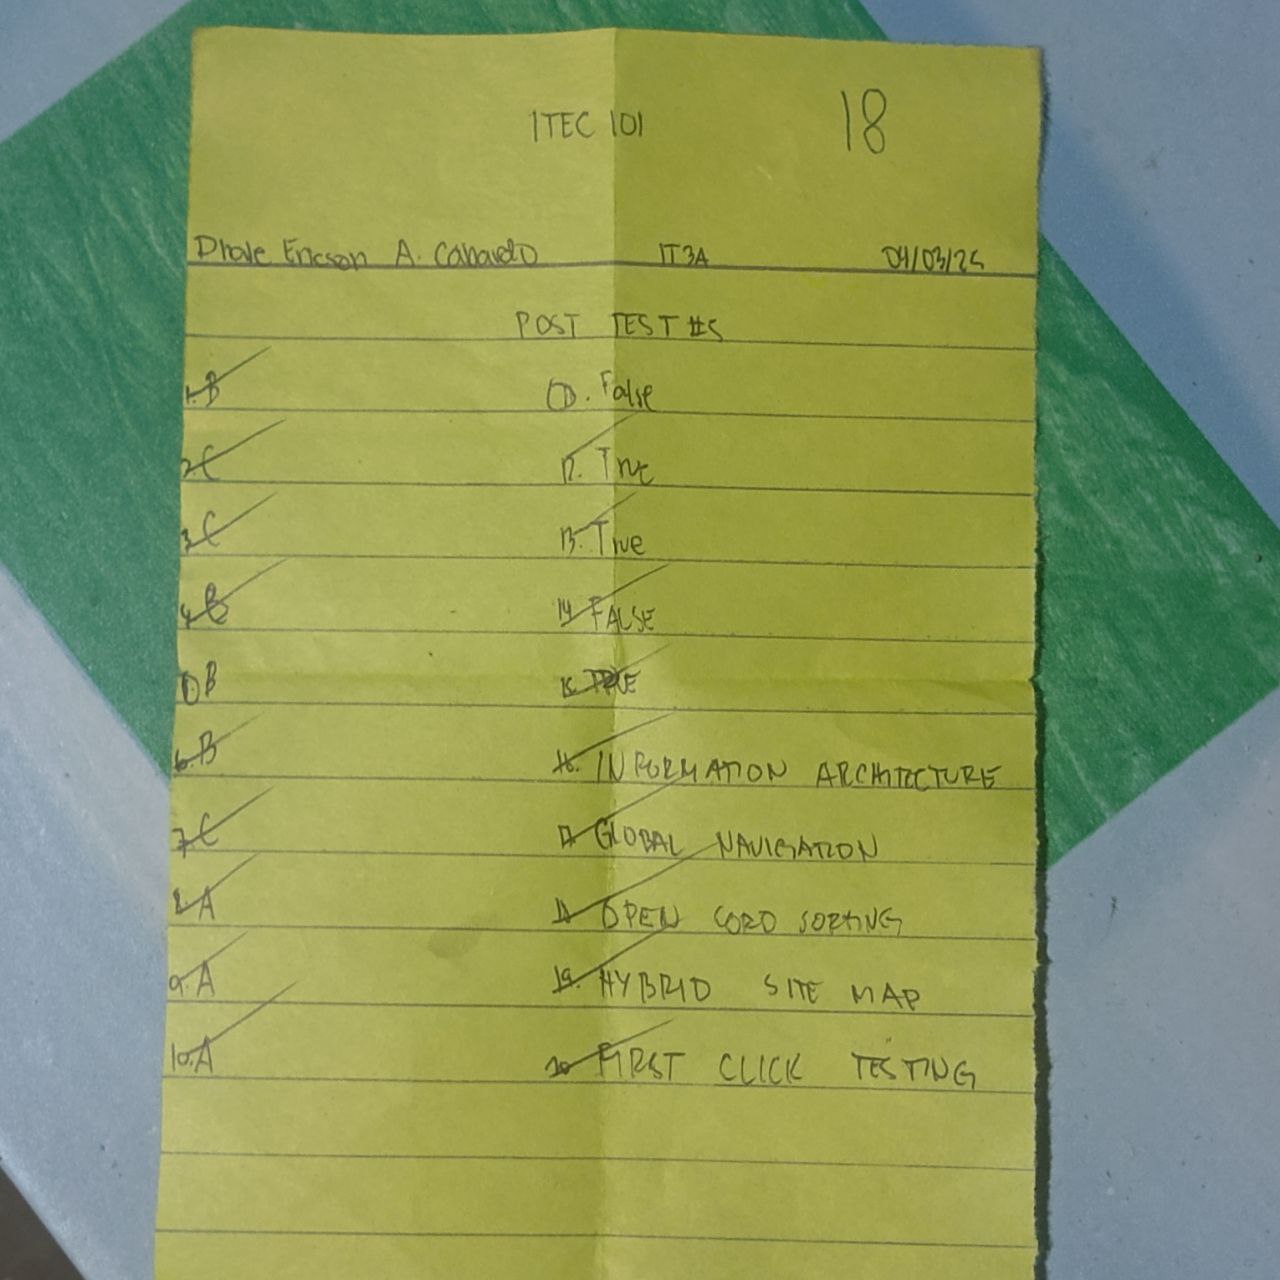 ITEC 101
18
Ericson A. IT3A 04/03/25
POST TEST #5
1. B
2. C
3. C
4. B
5. B
6. B
7. C
8. A
9. A
10. A
11. False
12. True
13. True
14. FALSE
15. TRUE
16. INFORMATION ARCHITECTURE
17. GLOBAL NAVIGATION
18. OPEN CORD SORTING
19. HYBRID SITE MAP
20. FIRST CLICK TESTING